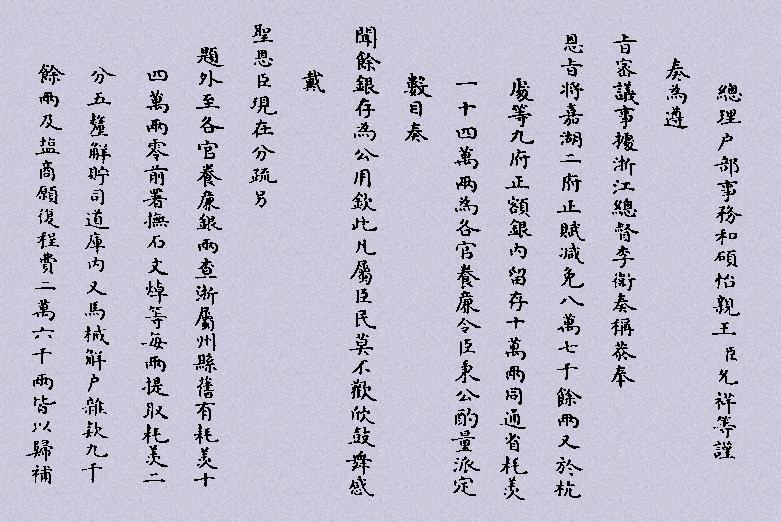 總理户部事務和碩怡親王臣允祥等謹
奏為遵
旨審議事據浙江總督李衛奏稱恭奉
恩旨將嘉湖二府正賦减免八萬七千餘兩又於杭
處等九府正額銀内留存十萬兩同通省耗羨
一十四萬兩為各官養廉令臣秉公酌量派定
數目奏
聞餘銀存為公用欽此凡屬臣民莫不歡欣鼓舞感
戴
聖恩臣現在分疏另
題外至各官養廉銀兩查浙屬州縣舊有耗羨十
四萬兩零前署撫石文焯等每兩提取耗羡二
分五釐解貯司道庫内又馬械解户雜款九千
餘兩及塩商願復程費二萬六千兩皆以歸補